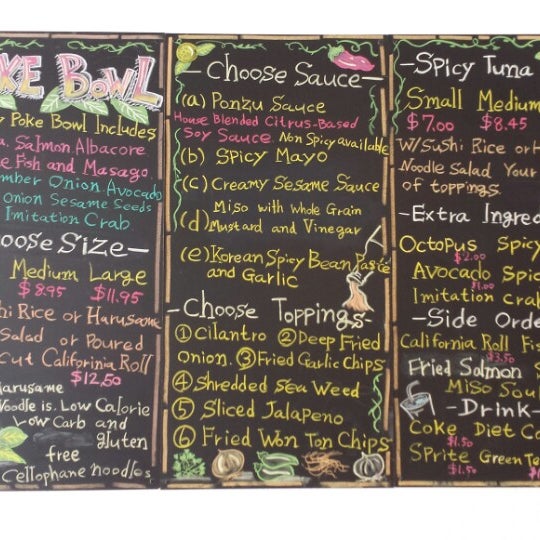 KE BOWL
Poke Bowl Includes
Salmon Albacore
Fish and Masago
mber Onion Avocado
Onion Sesame Seeds
Imitation Crab
oose Size—
Medium Large
$8.95 $11.95
hi Rice or Harusame
Salad or Poured
Cut Califorinia Roll
$12.50
Harusame
Noodle is. Low Calorie
Low Carb and
gluten
free
Cellophane noodles
—Choose Sauce—
(a) Ponzu Sauce
House Blended Citrus-Based
Soy Sauce Non Spicy available
(b) Spicy Mayo
(c) Creamy Sesame Sauce
Miso with Whole Grain
(d) Mustard and Vinegar
(e) Korean Spicy Bean Paste
and Garlic
—Choose Toppings—
① Cilantro ② Deep Fried
Onion. ③ Fried Garlic Chips
④ Shredded Sea Weed
⑤ Sliced Jalapeno
⑥ Fried Won Ton Chips
—Spicy Tuna
Small Medium
$7.00 $8.45
W/Sushi Rice or H
Noodle Salad Your
of toppings.
—Extra Ingre
Octopus Spicy
$2.00
Avocado Spic
$1.00
Imitation Crab
—Side Orde
California Roll Fi
$3.50
Fried Salmon S
Miso Sou
—Drink—
Coke Diet Co
$1.50
Sprite Green Te
$1.50